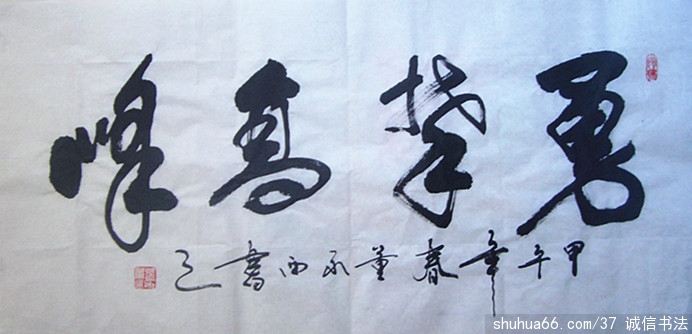 勇攀高峰
甲午年春董承雨書之
shuhua66.com/37 诚信书法